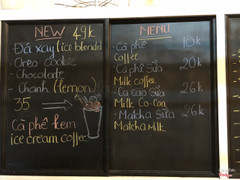 NEW 49k
- Đá xay (ice blended)
- Oreo cookie
- Chocolate
- Chanh (lemon)
35 →
Cà phê kem
ice cream coffee
MENU
- Cà phê 18k
Coffee
- Cà phê sữa 20k
Milk coffee
- Ca cao sữa 26k
Milk Co-coa
- Matcha sữa 26k
Matcha Milk